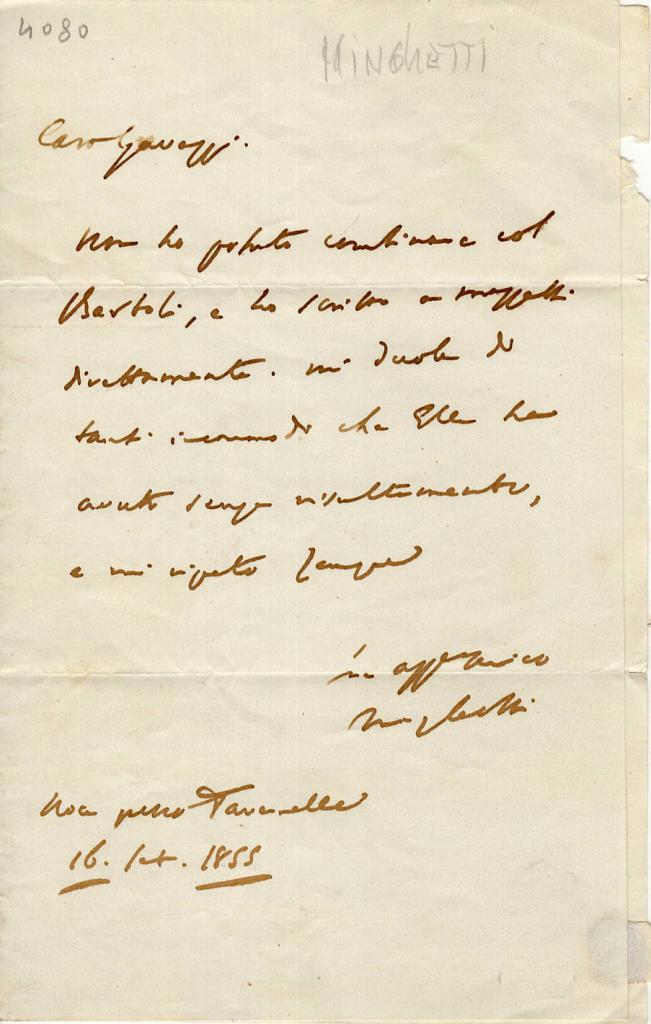 4080
MINGHETTI
Caro Gavazzi.
Non ho potuto combinare col
Bartoli, e ho scritto a
direttamente. mi duole di
tanti incomodi che Ella ha
avuto senza risultamento,
e mi ripeto sempre
suo aff amico
Minghetti
16. set. 1855